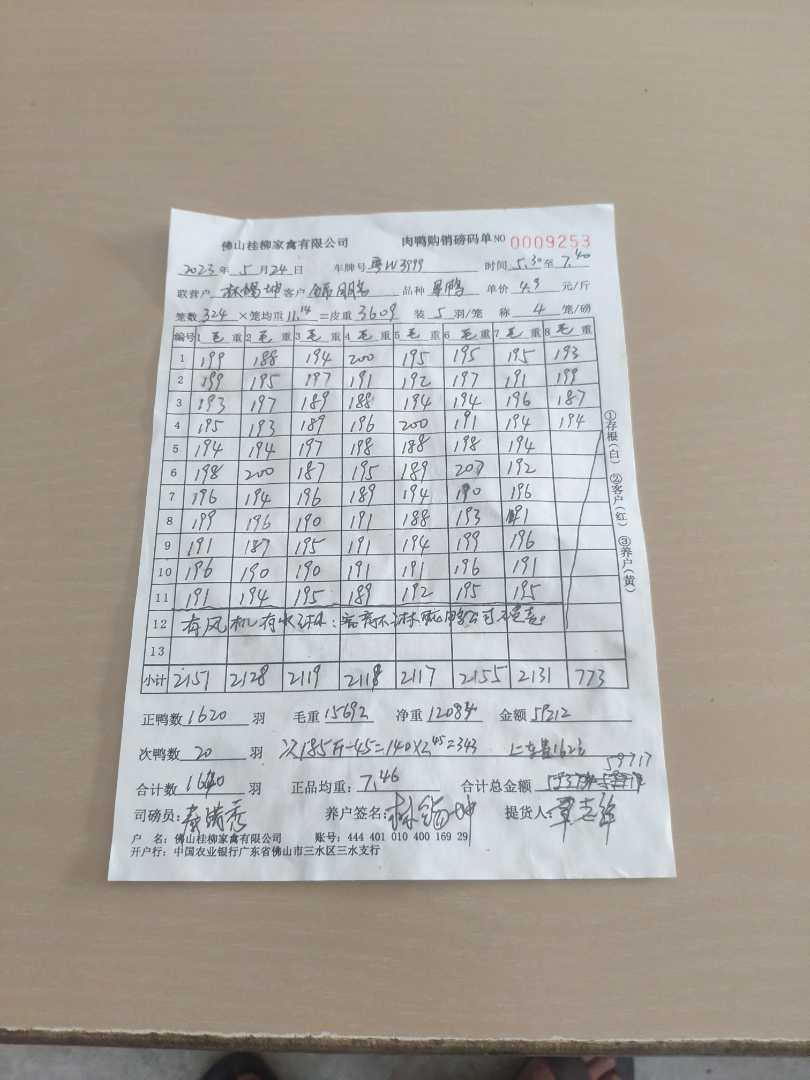 佛山桂柳家禽有限公司 肉鸭购销磅码单 NO 0009253
2023年 5月24日 车牌号 粤W3999 时间 5.30至7.40
联营户 林锡坤 客户 品种 单价 4.9 元/斤
笼数 324 ×笼均重 11.14 =皮重 3609 装 5 羽/笼 称 4 笼/磅
编号 1 毛 重 2 毛 重 3 毛 重 4 毛 重 5 毛 重 6 毛 重 7 毛 重 8 毛 重
1 199 188 194 200 195 195 195 193
2 199 195 197 191 192 197 191 199
3 193 197 189 188 194 194 196 187
4 195 193 189 196 200 191 194 194
5 194 194 197 198 188 198 194
6 198 200 187 195 189 207 192
7 196 194 196 189 194 190 196
8 199 196 190 191 188 193 191
9 191 187 195 191 194 199 196
10 196 190 190 191 191 196 191
11 191 194 195 189 192 195 195
12 有风机有水淋:
13
小计 2151 2128 2119 2118 2117 2155 2131 773
正鸭数 1620 羽 毛重 15692 净重 12084 金额 59212
次鸭数 20 羽 次185斤-45=140×2.45=343
59717
合计数 1640 羽 正品均重: 7.46 合计总金额
司磅员: 养户签名: 林锡坤 提货人:
户 名: 佛山桂柳家禽有限公司 账号: 444 401 010 400 169 29
开户行: 中国农业银行广东省佛山市三水区三水支行
①存根(白) ②客户(红) ③养户(黄)